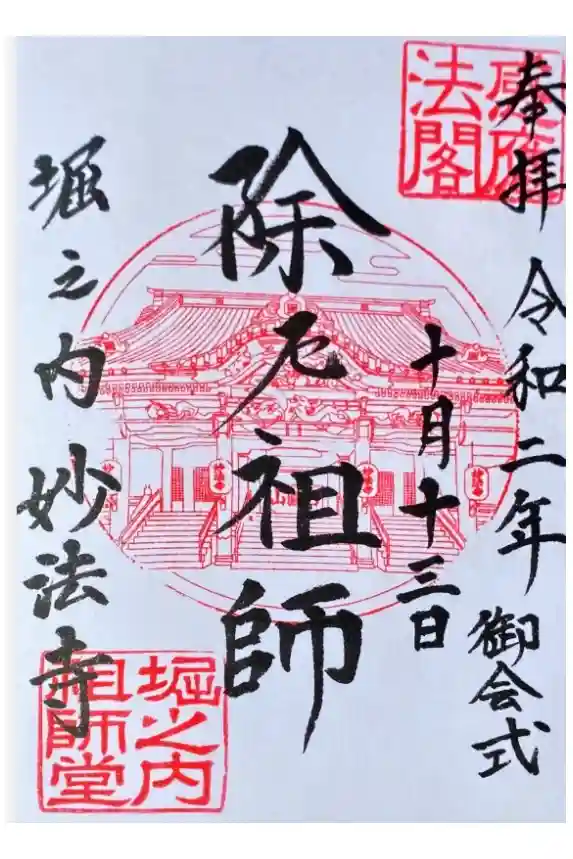 奉拝
令和二年
十月十三日
御会式
除厄祖師
堀之内
妙法寺
法閣
堀之内
祖師堂